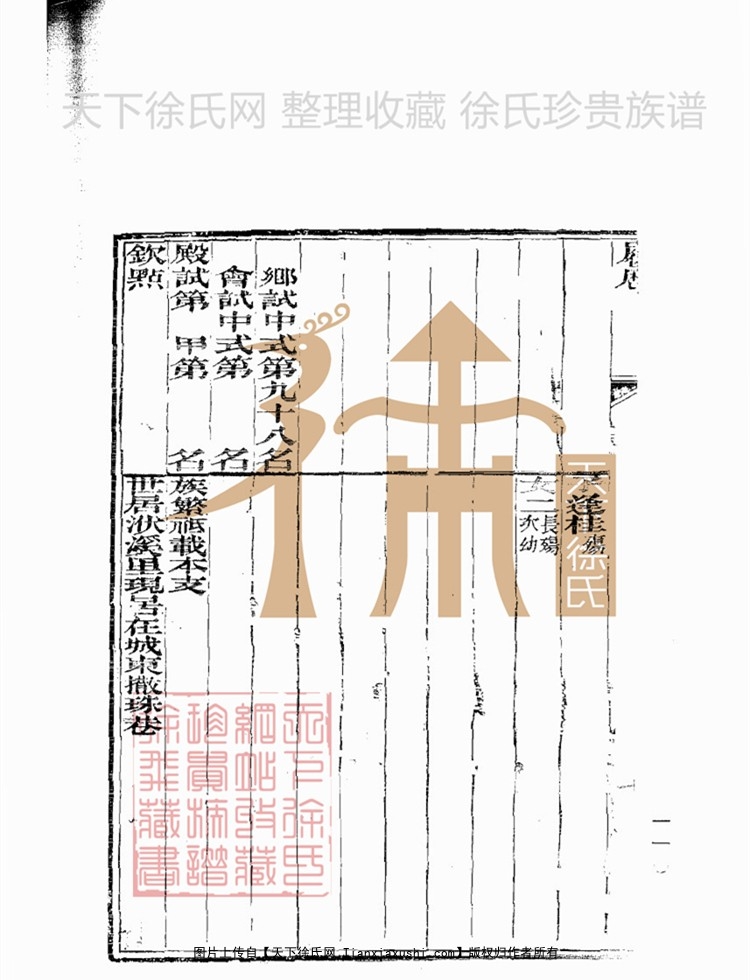 天下徐氏网 整理收藏 徐氏珍贵族谱
逢桂 殤
女二 長殤 次幼
鄉試中式第九十八名
會試中式第 名
殿試第 甲第 名
欽點
族繁祗載本支
世居洑溪里現居在城東撒珠巷
天下徐氏
天下徐氏
網站收藏
珍貴族譜
徐 藏書
图片上传自【天下徐氏网 Tianxiaxushi.com】版权归作者所有